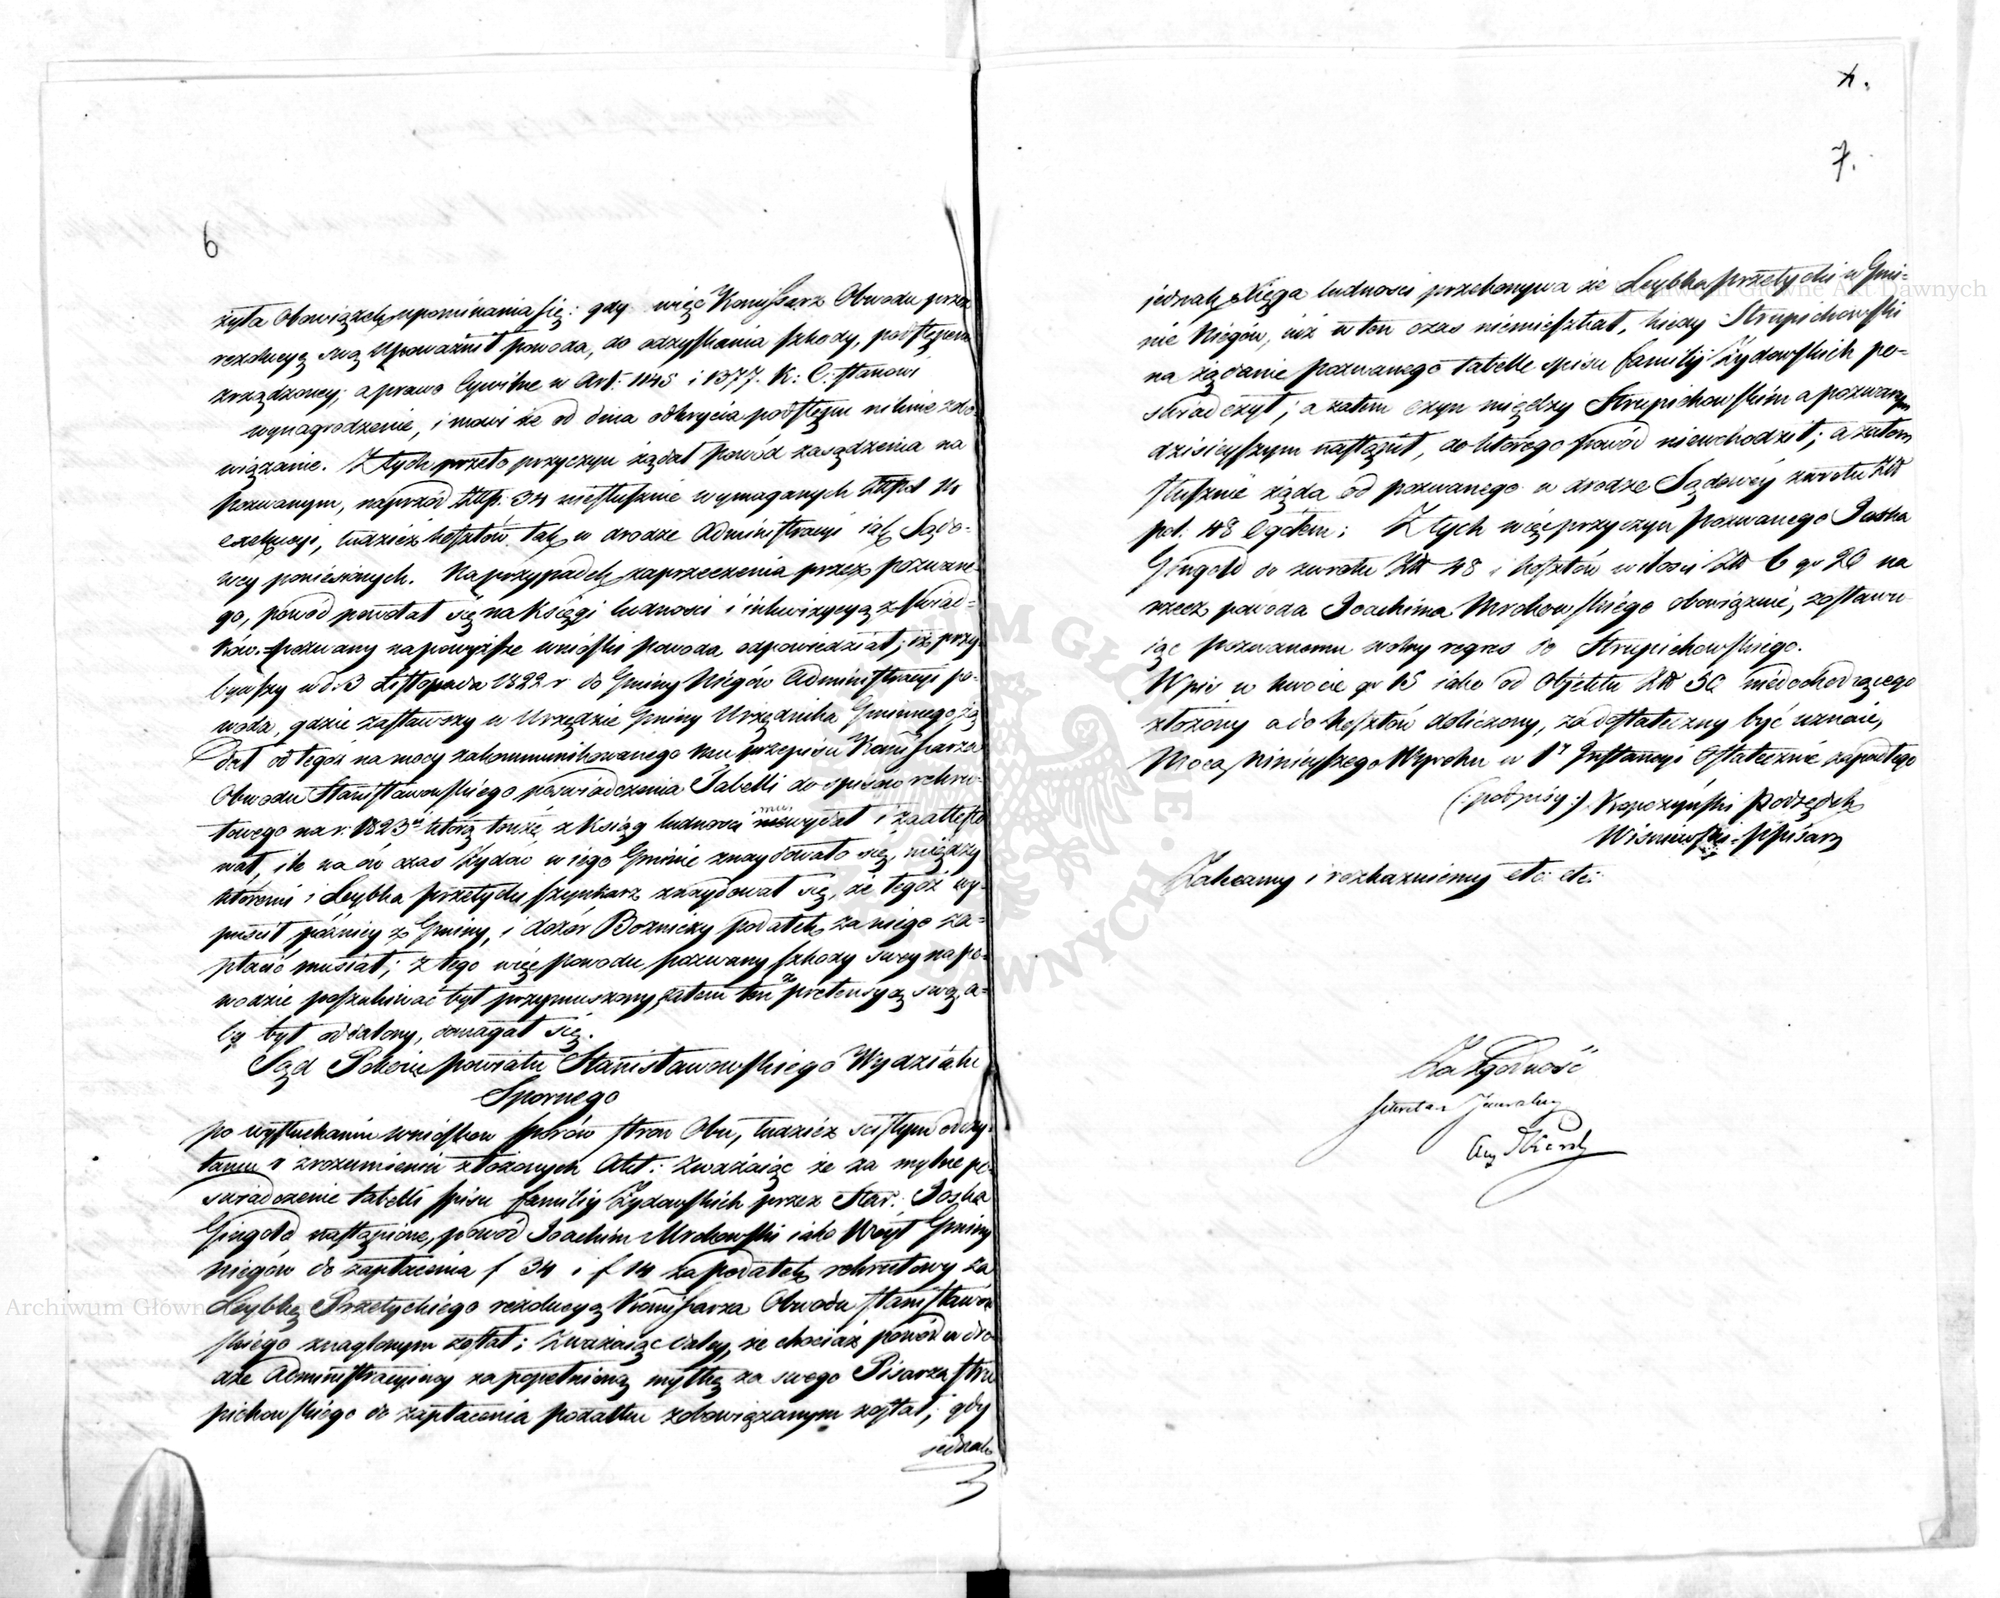 6
żyła Obowiązek upominania się: gdy więc Kommissarz Obwodu przez
rezolucyę swą Upoważnił powoda, do odzyskania szkody, podstępem
zrządzoney; a prawo Cywilne w Art: 1145 i 1377. K: C: stanowi
wynagrodzenie, i mowi że od dnia odkrycia podstępu niknie zobo-
wiązanie. Z tych przeto przyczyn żądał powód zasądzenia na
pozwanym, naprzód Złłp. 34 niesłusznie wymaganych
exekucyi, tudzież kosztów tak w drodze Administracyi iak Sądo-
wey poniesionych. Na przypadek zaprzeczenia przez pozwane-
go, powód powołał się na Księgi ludności i inkwizycyą z świad-
ków. – pozwany na powyższe wnioski powoda odpowiedział; iż przy-
bywszy w d. 3 Listopada 1822 r do Gminy Niegów Administracyi po-
woda, gdzie zastawszy w Urzędzie Gminy Urzędnika Gminnego żą
dał od tegoż na mocy zakommunikowanego mu przepisu Kommissarza
Obwodu Stanisławowskiego poświadczenia Tabelli do spisów rekru-
towego na r: 1823 którą tenże z Ksiąg ludności mu wydał i zaattesto
wał, ile na ów czas Żydów w iego Gminie znaydowało się, między
któremi i Leybka przetycki szynkarz znaydował się, że tegoż wy-
puścił późniey z Gminy, i dozór Bozniczy podatek za niego za-
płacić musiał; z tego więc powodu pozwany szkody swey na po-
wodzie poszukiwać był przymuszony, zatem ten że pretensyą swą, a-
by był oddalony, domagał się.
Sąd Pokoiu powiatu Stanisławowskiego Wydziału
Spornego
po wysłuchaniu wniosków sporów stron Obu, tudzież ścisłym odczy-
taniu i zrozumieniu złożonych Akt: zważaiąc że za mylne po-
świadczenie tabelli spisu familiy Żydowskich przez Star: Joska
Gingold nastąpione, powód Joachim Mrokowski iako Wóyt Gminy
Niegów do zapłacenia f 34 i f 14 za podatek rekrutowy za
Leybkę Przetyckiego rezolucyą Kommissarza Obwodu Stanisławow
skiego znaglonym został; Zważaiąc daley, że chociaż powód w dro
dze Administracyiney za popełnioną myłkę za swego Pisarza Stru
pichowskiego do zapłacenia podatku zobowiązanym został; gdy
iednak
7.
iednak Xięga ludności przekonywa że Leybka przetycki w Gmi-
nie Niegów, iuż w ten czas niemieszkał, kiedy Strupichowski
na żądanie pozwanego tabelle spisu familiy Żydowskich po-
świadczył; a zatem czyn między Strupichowskim a pozwanym
dzisieyszym nastąpił, do którego powód niewchodził; a zatem
słusznie żąda od pozwanego w drodze Sądowéy zwrotu Złł
pol. 48 Ogółem; Z tych więc przyczyn pozwanego Joska
Gingold do zwrotu Złł 48 i kosztów w ilości Złł 6 gr 20 na
rzecz powoda Joachima Mrokowskiego obowiązuie, zostawu
iąc pozwanemu wolny regres do Strupichowskiego.
Wpis w kwocie gr 15 iako od Objektu Złł 50 niedochodzącego
złożony a do kosztów doliczony, za dostateczny być uznaie,
Mocą Ninieyszego Wyroku w 1ey Instancyi Ostatecznie zapadłego
(:podpisy:) Kopczyński Podsędek
Wiśniewski Ppisarz
Zalecamy i rozkazuiemy etc: etc:
Za Zgodność
Sekretarz Jeneralny
Archiwum Główne Akt Dawnych